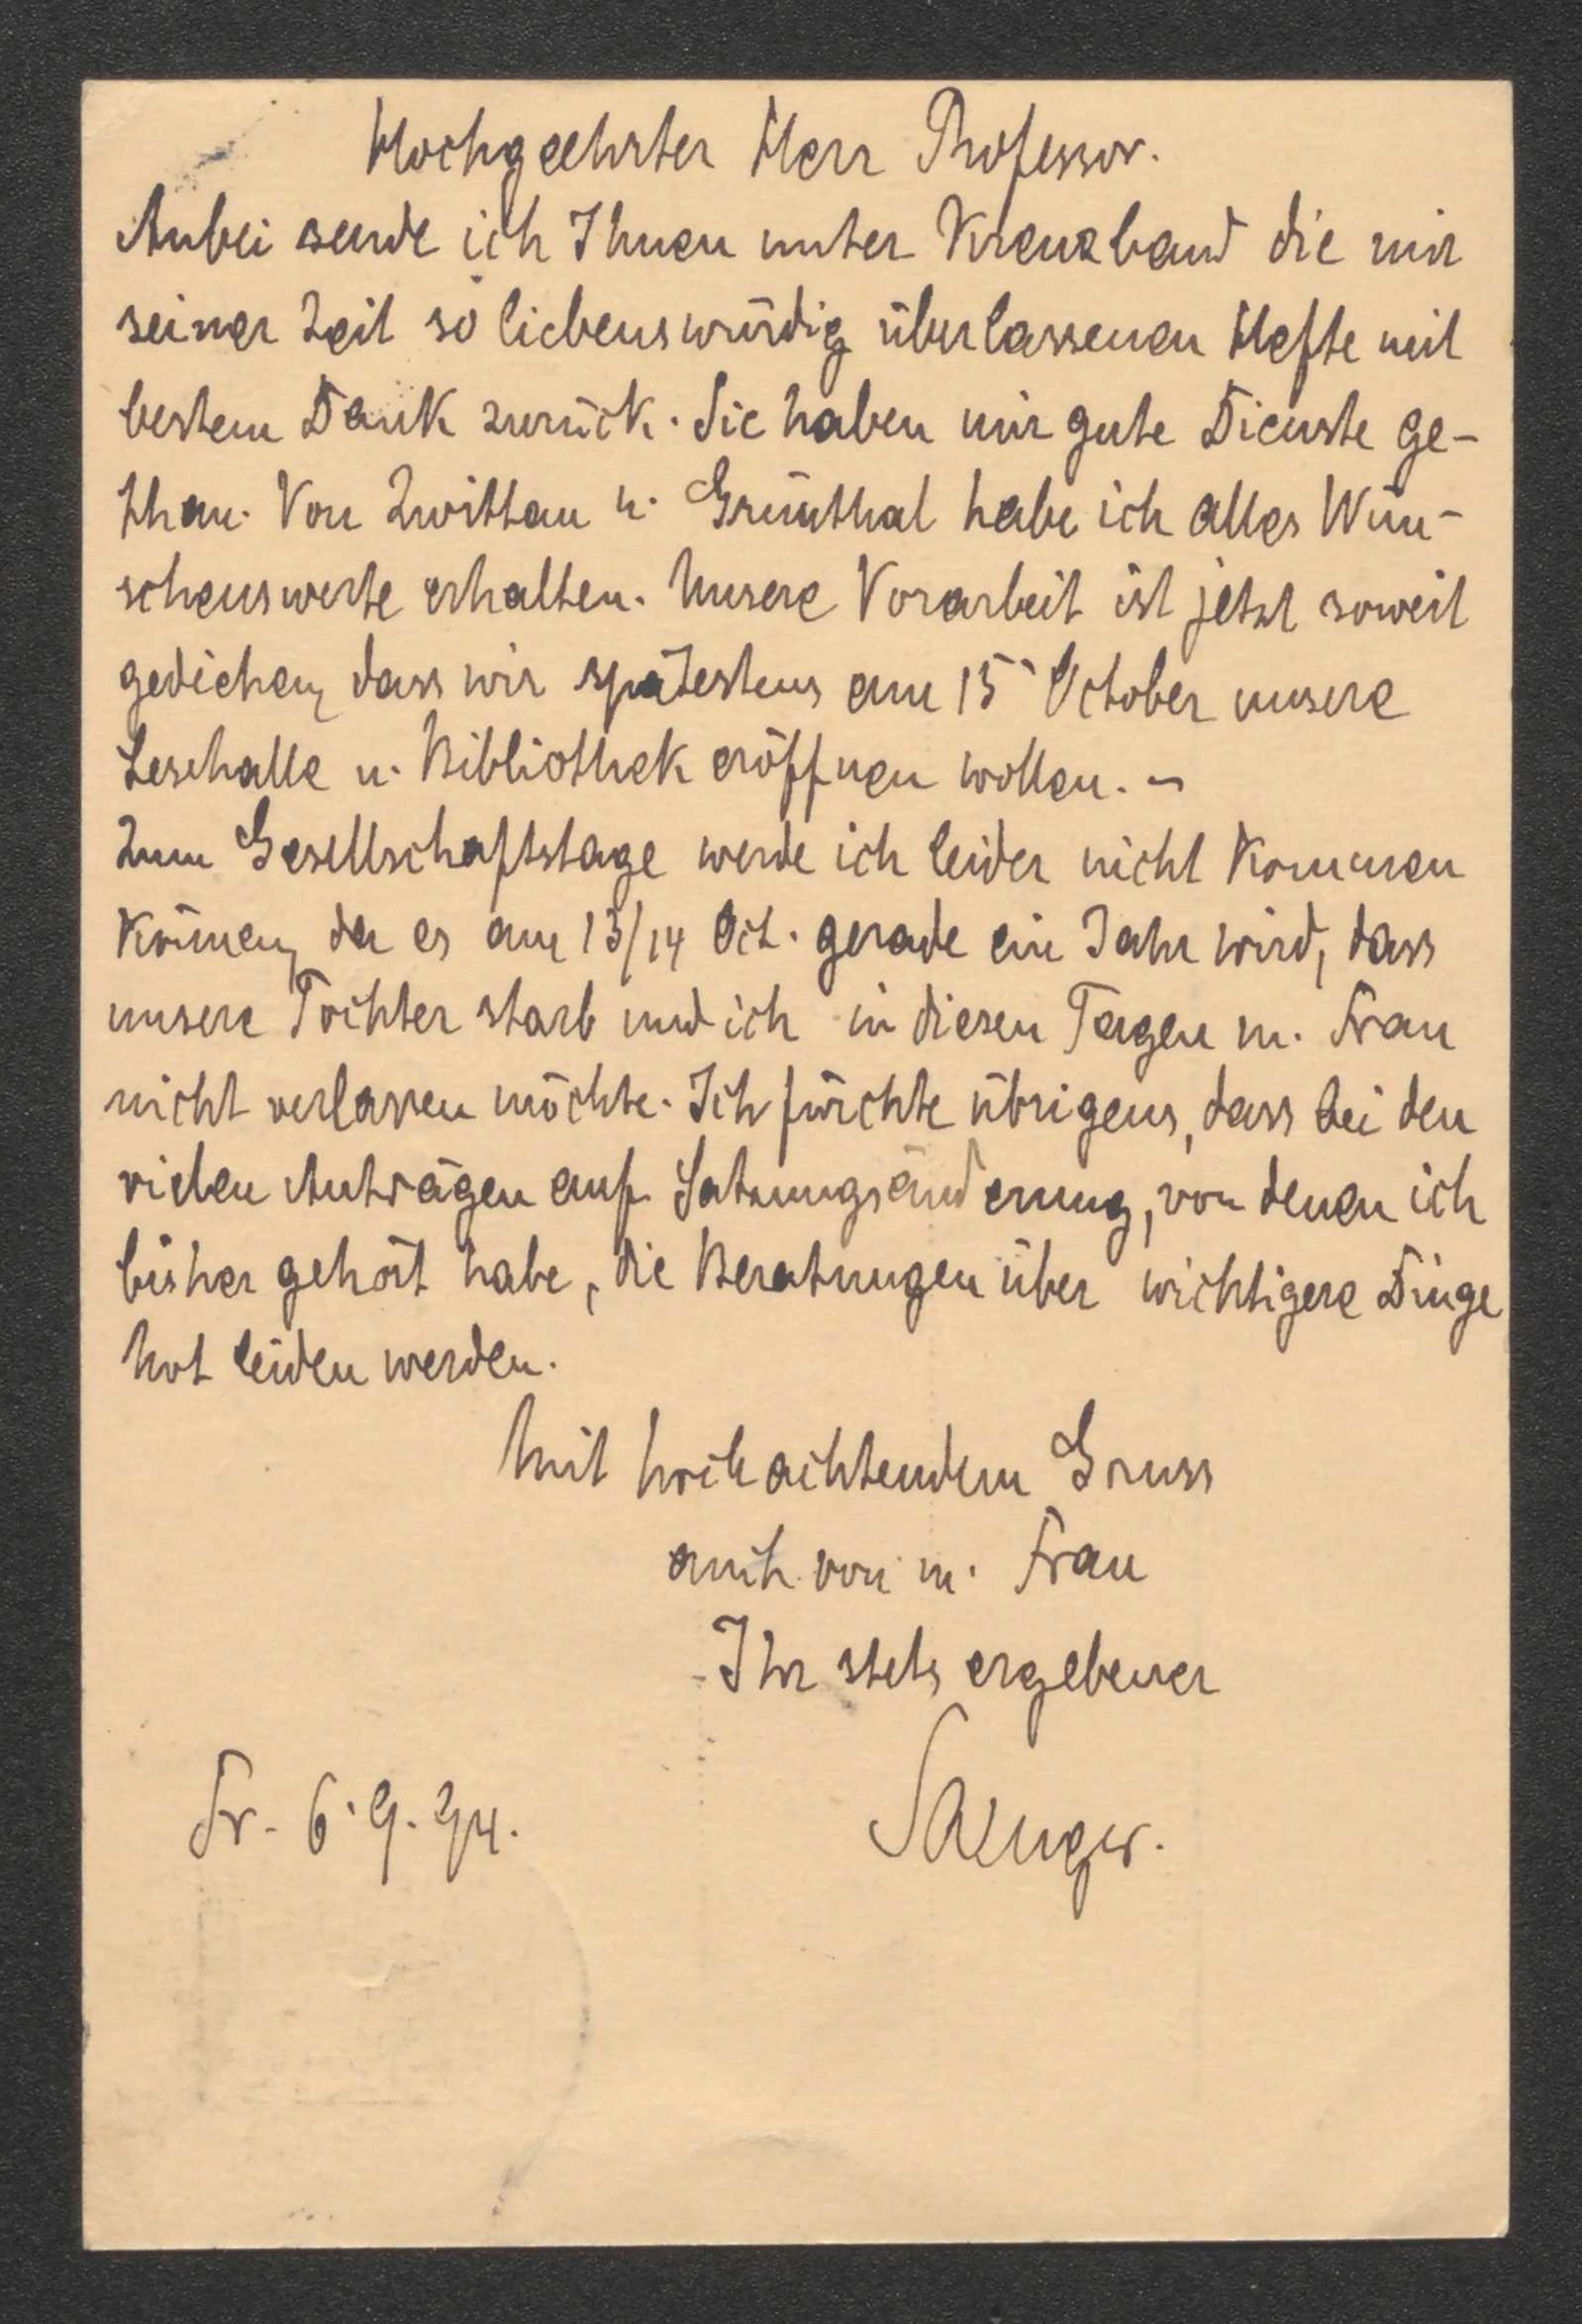 Hochgeehrter Herr Professor.
Anbei sende ich Ihnen unter Kreuzband die mir
seiner Zeit so liebenswürdig überlassenen Hefte mit
bestem Dank zurück. Sie haben mir gute Dienste ge-
than. Von Zwittau u. Grünthal habe ich alles Wün-
schenswerte erhalten. Unsere Vorarbeit ist jetzt soweit
gediehen, dass wir spätestens am 15 October unsere
Lesehalle u. Bibliothek eröffnen wollen. –
Zum Gesellschaftstage werde ich leider nicht kommen
können, da es am 13/14 Oct. gerade ein Jahr wird, dass
unsere Tochter starb und ich in diesen Tagen m. Frau
nicht verlassen möchte. Ich fürchte übrigens, dass bei den
vielen Anträgen auf Satzungsänderung, von denen ich
bisher gehört habe, die Beratungen über wichtigere Dinge
Not leiden werden.
Mit hochachtendem Gruss
auch von m. Frau
Ihr stets ergebener
Fr. 6.9.94.